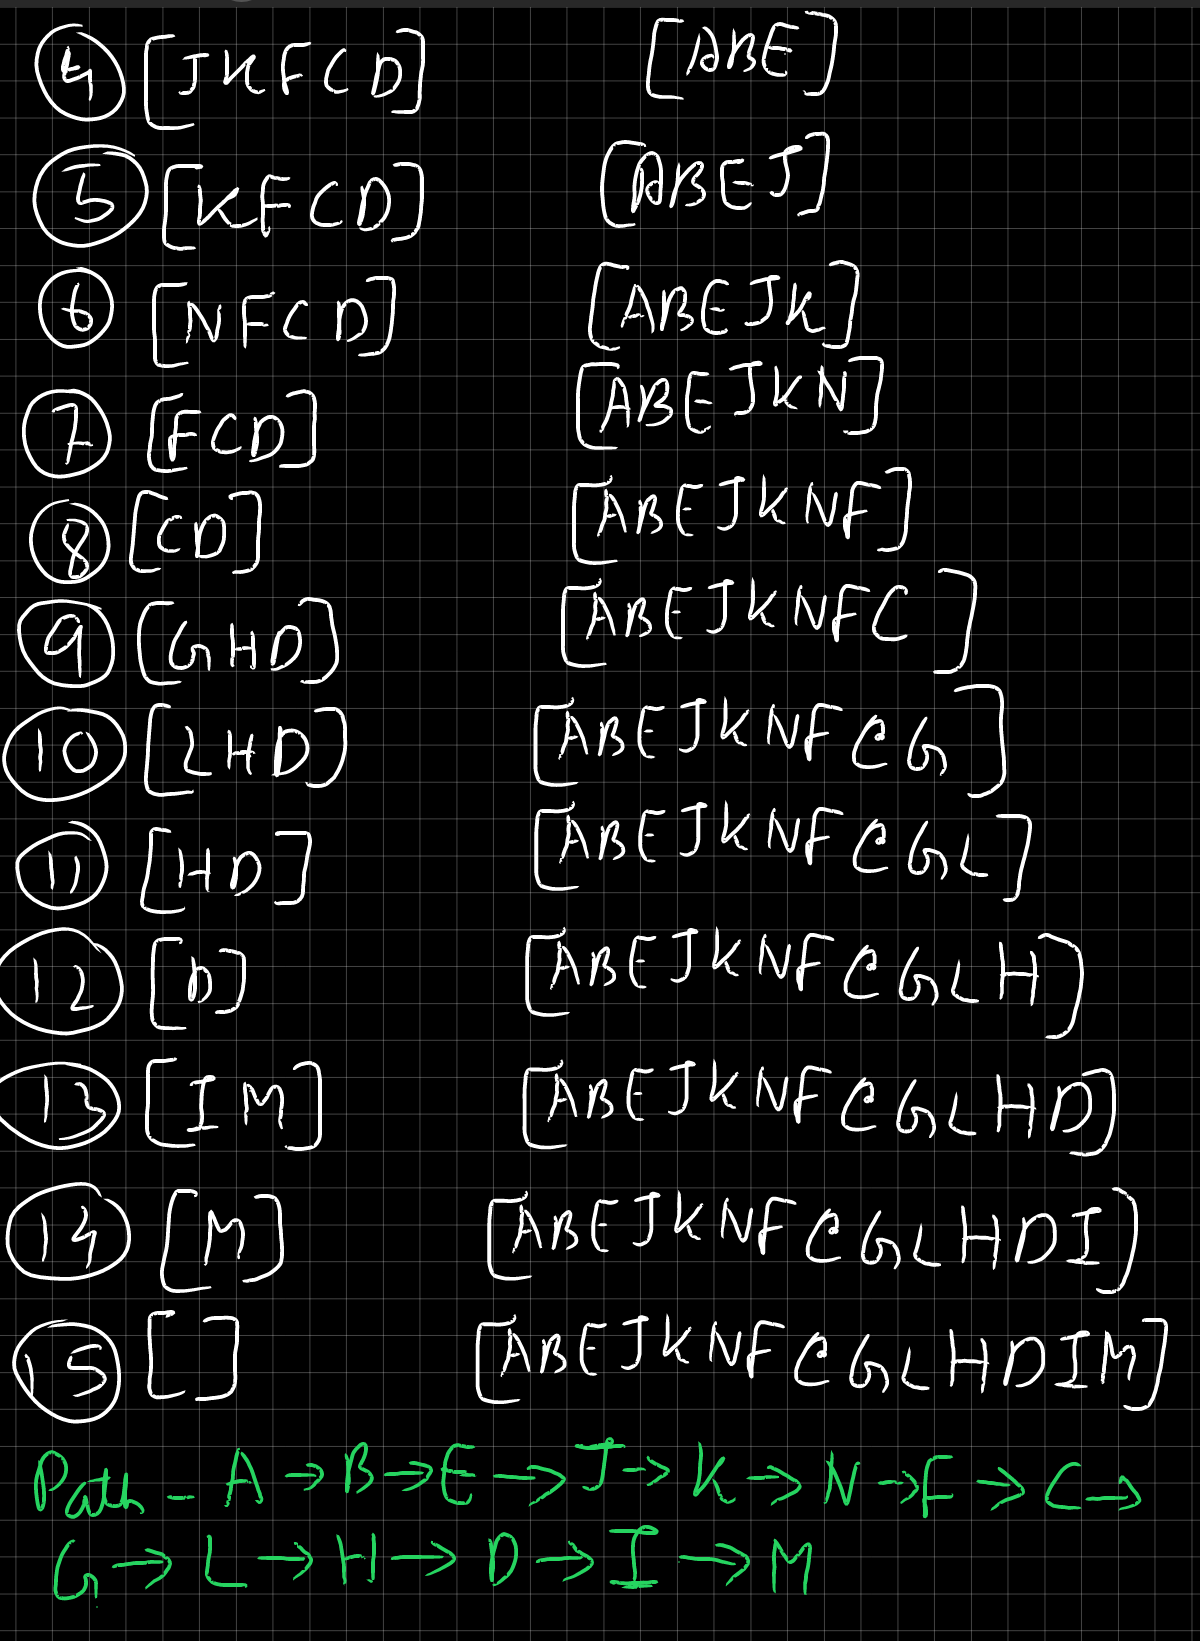 4 [JKFCD] [ABE]
5 [KFCD] [ABEJ]
6 [NFCD] [ABEJK]
7 [FCD] [ABEJKN]
8 [CD] [ABEJKNF]
9 [GHD] [ABEJKNFC]
10 [LHD] [ABEJKNFCG]
11 [HD] [ABEJKNFCGL]
12 [D] [ABEJKNFCGLH]
13 [IM] [ABEJKNFCGLHD]
14 [M] [ABEJKNFCGLHDI]
15 [ ] [ABEJKNFCGLHDIM]
Path - A → B → E → J → K → N → F → C →
G → L → H → D → I → M